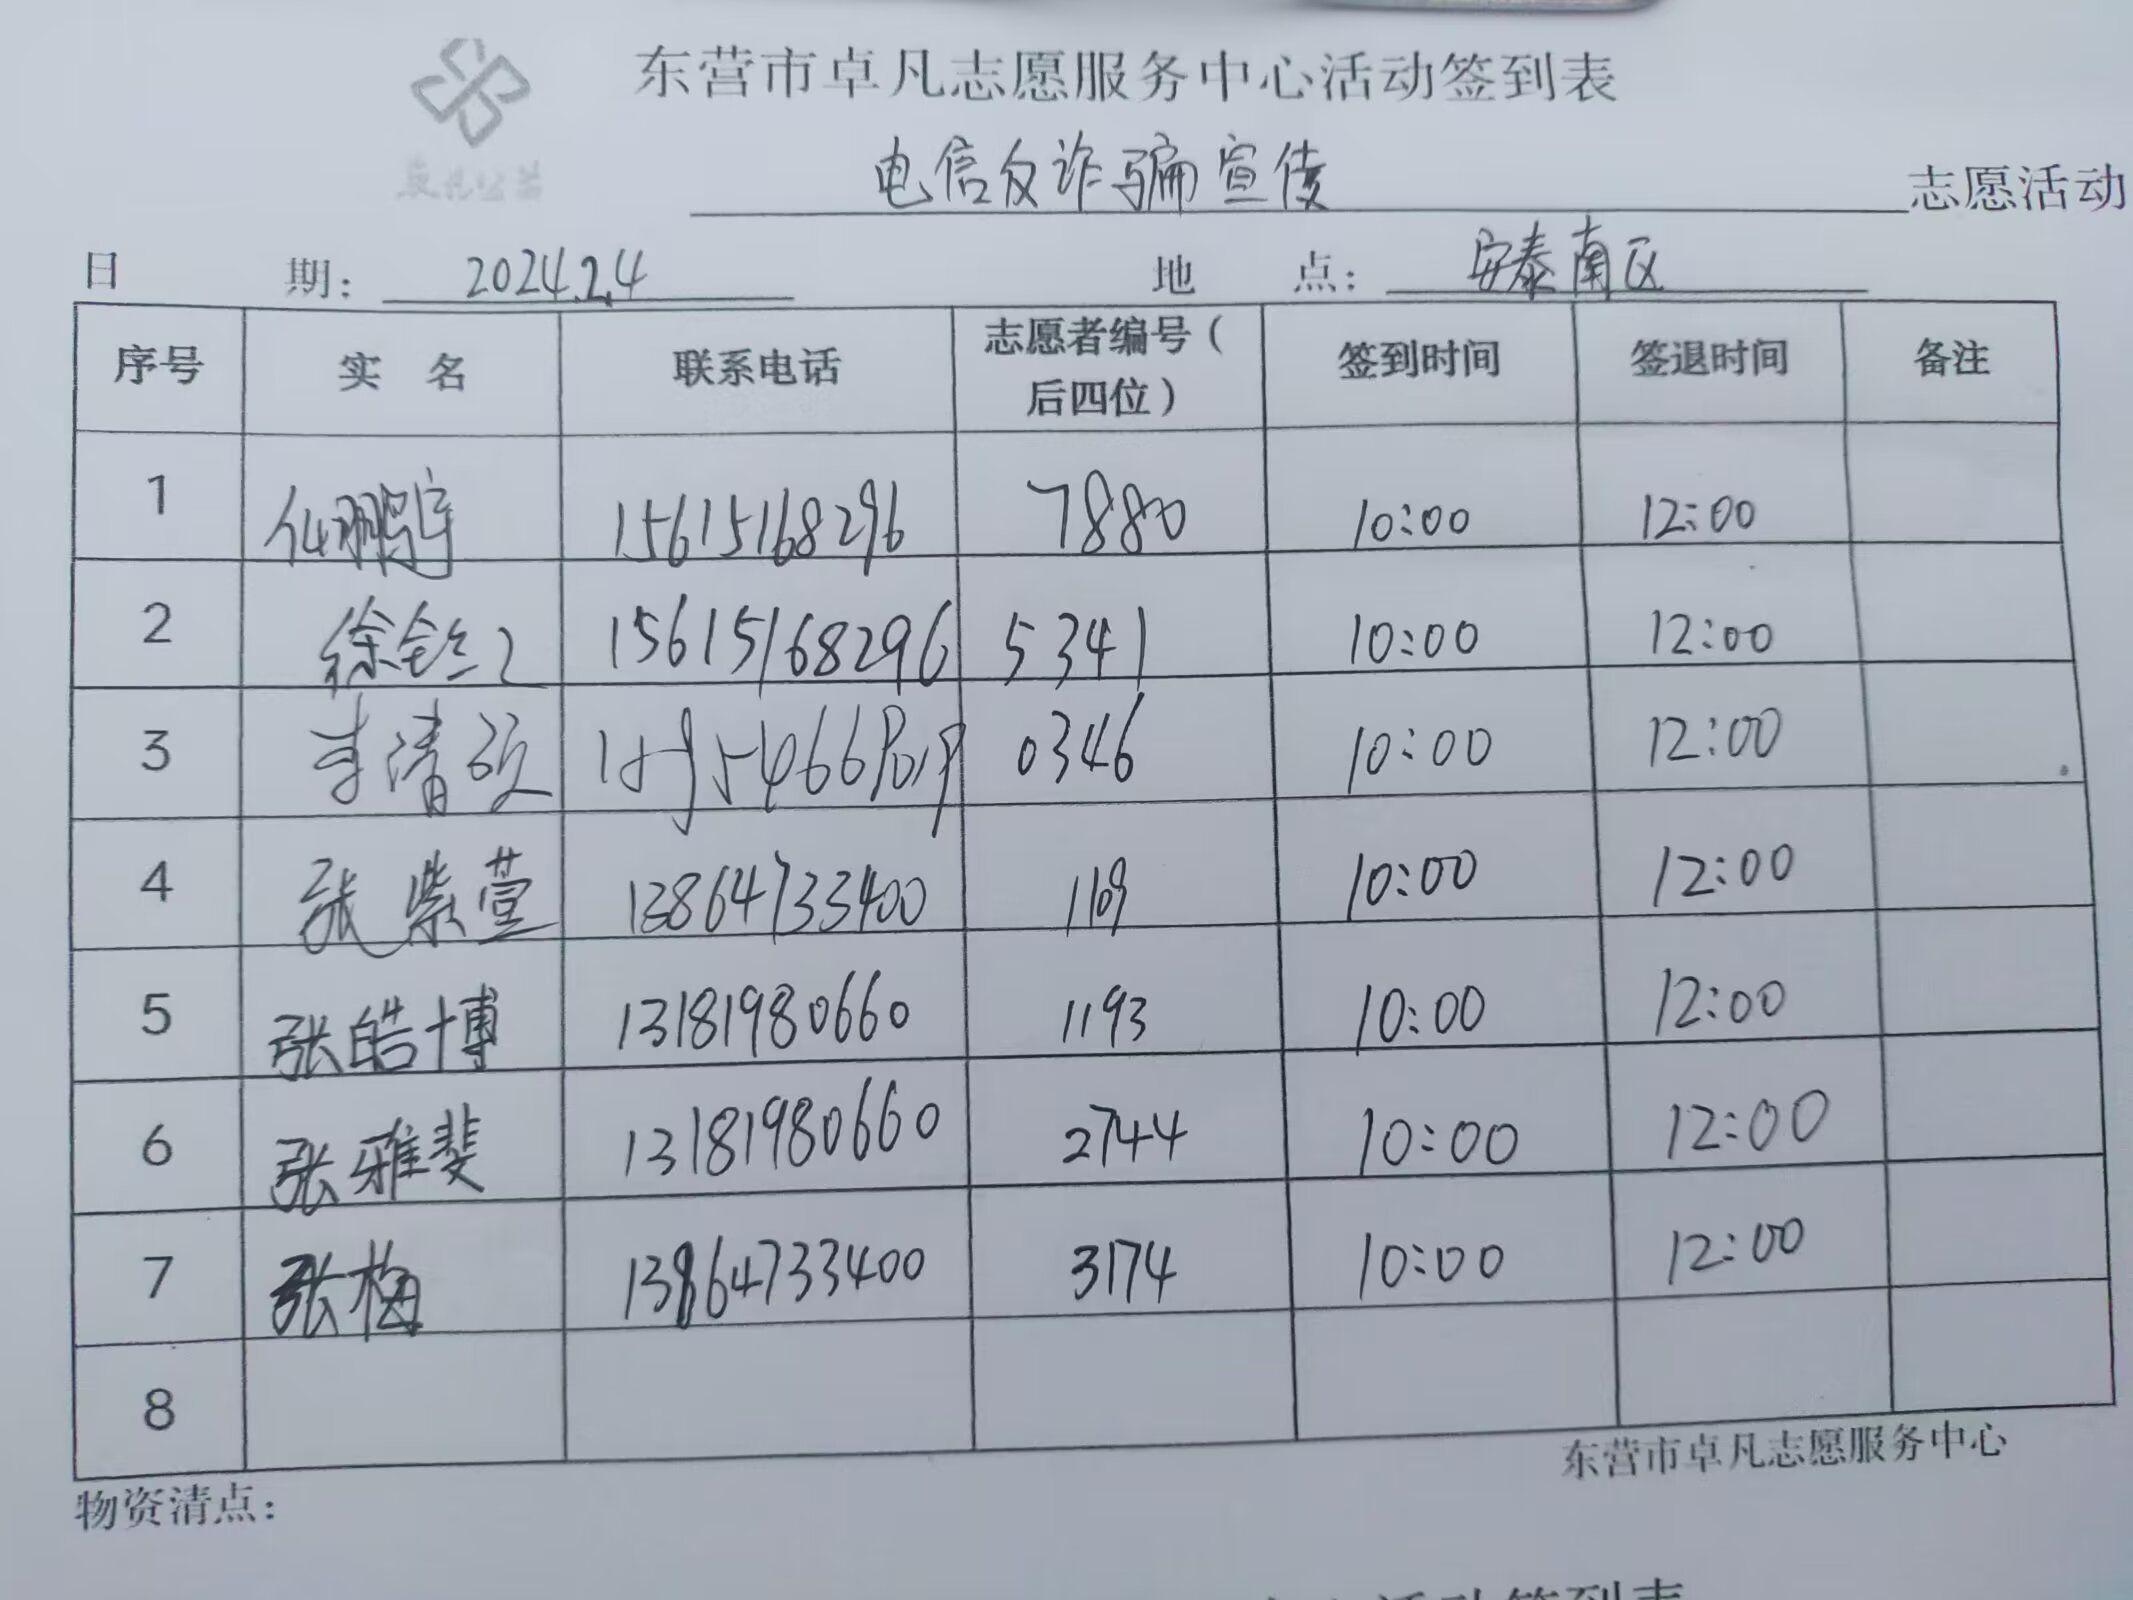 东营市卓凡志愿服务中心活动签到表
电信反诈骗宣传 志愿活动
日 期： 2024.2.4 地 点： 安泰南区
序号 实 名 联系电话 志愿者编号（后四位） 签到时间 签退时间 备注
1 鹏宇 15615168296 7880 10:00 12:00
2 徐 15615168296 5341 10:00 12:00
3 李清 0346 10:00 12:00
4 张紫萱 13864733400 1169 10:00 12:00
5 张皓博 13181980660 1193 10:00 12:00
6 张雅斐 13181980660 2744 10:00 12:00
7 张梅 13864733400 3174 10:00 12:00
8
东营市卓凡志愿服务中心
物资清点：